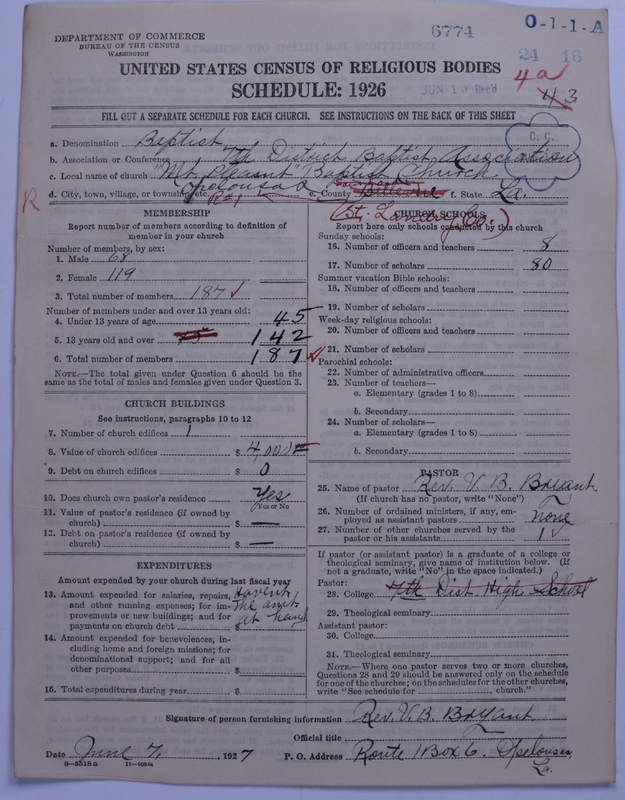 6774
O-1-1-A
DEPARTMENT OF COMMERCE
BUREAU OF THE CENSUS
WASHINGTON
24 16
UNITED STATES CENSUS OF RELIGIOUS BODIES
4a
SCHEDULE: 1926
JUN 10 Rec'd
43
FILL OUT A SEPARATE SCHEDULE FOR EACH CHURCH. SEE INSTRUCTIONS ON THE BACK OF THIS SHEET
C. C.
a. Denomination Baptist
b. Association or Conference 7th District Baptist Association
c. Local name of church "Mt. Pleasant" Baptist Church
d. City, town, village, or township, etc. Opelousas e. County f. State La.
R
R#1
(St. Landry Co.)
MEMBERSHIP
Report number of members according to definition of member in your church
Number of members, by sex:
1. Male 68
2. Female 119
3. Total number of members 187
Number of members under and over 13 years old:
4. Under 13 years of age 45
5. 13 years old and over 142
6. Total number of members 187
NOTE.—The total given under Question 6 should be the
same as the total of males and females given under Question 3.
CHURCH BUILDINGS
See instructions, paragraphs 10 to 12
7. Number of church edifices 1
8. Value of church edifices $ 4,000
9. Debt on church edifices $ 0
10. Does church own pastor's residence Yes
Yes or No
11. Value of pastor's residence (if owned by
church) $ —
12. Debt on pastor's residence (if owned by
church) $ —
EXPENDITURES
Amount expended by your church during last fiscal year
13. Amount expended for salaries, repairs, Havent
and other running expenses; for im- the amt
provements or new buildings; and for at hand
payments on church debt $
14. Amount expended for benevolences, in-
cluding home and foreign missions; for
denominational support; and for all
other purposes $
15. Total expenditures during year $
CHURCH SCHOOLS
Report here only schools conducted by this church
Sunday schools:
16. Number of officers and teachers 8
17. Number of scholars 80
Summer vacation Bible schools:
18. Number of officers and teachers
19. Number of scholars
Week-day religious schools:
20. Number of officers and teachers
21. Number of scholars
Parochial schools:
22. Number of administrative officers
23. Number of teachers—
a. Elementary (grades 1 to 8)
b. Secondary
24. Number of scholars—
a. Elementary (grades 1 to 8)
b. Secondary
PASTOR
25. Name of pastor Rev. V. B. Bryant
(If church has no pastor, write "None")
26. Number of ordained ministers, if any, em-
ployed as assistant pastors none
27. Number of other churches served by the
pastor or his assistants 1
If pastor (or assistant pastor) is a graduate of a college or
theological seminary, give name of institution below. (If
not a graduate, write "No" in the space indicated.)
Pastor:
28. College 7th Dist. High School
29. Theological seminary
Assistant pastor:
30. College
31. Theological seminary
NOTE.—Where one pastor serves two or more churches,
Questions 28 and 29 should be answered only on the schedule
for one of the churches; on the schedules for the other churches,
write "See schedule for church."
Signature of person furnishing information Rev. V. B. Bryant
Official title
Date June 7, 1927 P. O. Address Route 1 Box 6. Opelousas,
La.